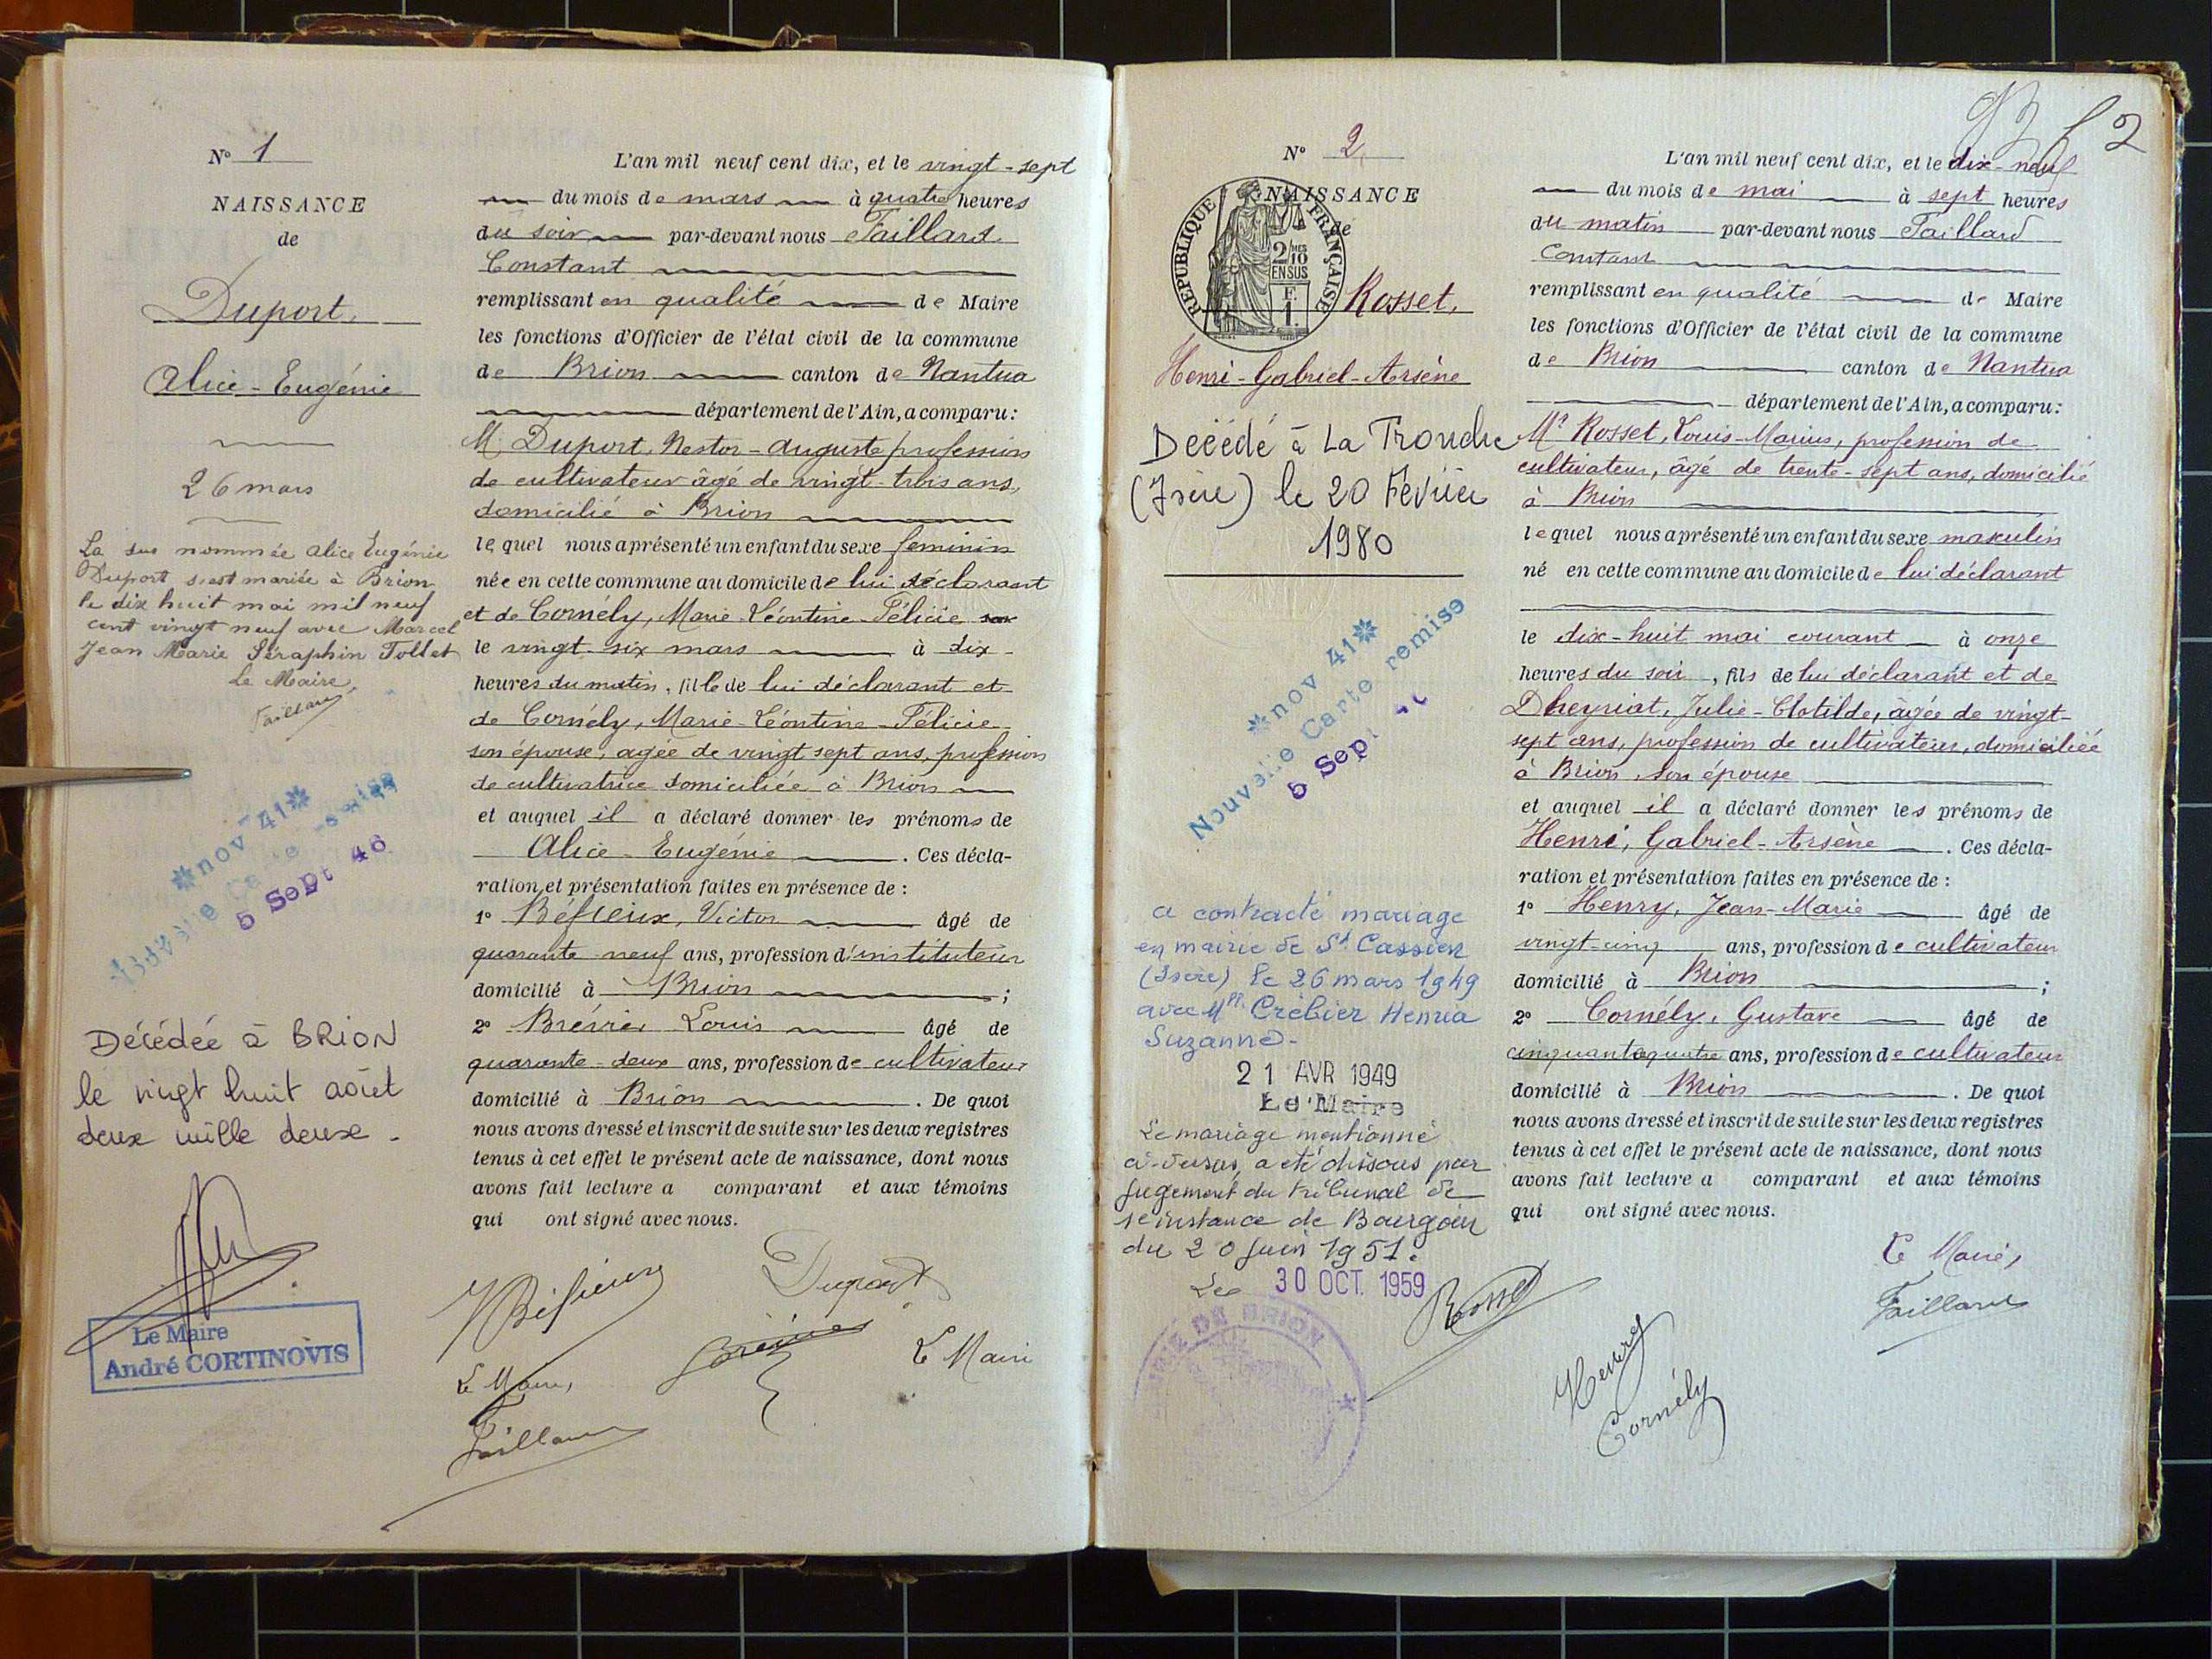 N° 1
NAISSANCE
de
Duport,
Alice-Eugénie
26 mars
La sus nommée Alice Eugénie
Duport s'est mariée à Brion
le dix huit mai mil neuf
cent vingt neuf avec Marcel
Jean Marie Séraphin Tollet
Le Maire,
Taillard
*nov 41*
Nouvelle Carte remise
5 Sept 46
Décédée à BRION
le vingt huit août
deux mille deux.
Le Maire
André CORTINOVIS
L'an mil neuf cent dix, et le vingt-sept
du mois de mars à quatre heures
du soir par-devant nous Taillard
Constant
remplissant en qualité de Maire
les fonctions d'Officier de l'état civil de la commune
de Brion canton de Nantua
département de l'Ain, a comparu:
M. Duport, Nestor-Auguste profession
de cultivateur âgé de vingt-trois ans,
domicilié à Brion
lequel nous a présenté un enfant du sexe feminin
née en cette commune au domicile de lui déclarant
et de Cornély, Marie-Léontine-Félicie
le vingt-six mars à dix-
heures du matin, fille de lui déclarant et
de Cornély, Marie-Léontine-Félicie
son épouse, agée de vingt sept ans, profession
de cultivatrice domiciliée à Brion
et auquel il a déclaré donner les prénoms de
Alice-Eugénie . Ces décla-
ration et présentation faites en présence de :
1° Victor âgé de
quarante neuf ans, profession d'instituteur
domicilié à Brion ;
2° Louis âgé de
quarante-deux ans, profession de cultivateur
domicilié à Brion . De quoi
nous avons dressé et inscrit de suite sur les deux registres
tenus à cet effet le présent acte de naissance, dont nous
avons fait lecture a comparant et aux témoins
qui ont signé avec nous.
Duport
Le Maire
Le Maire,
Taillard
N° 2
NAISSANCE
de
REPUBLIQUE FRANÇAISE
2/10 MES
EN SUS
F.
1.
Rosset,
Henri-Gabriel-Arsène
Décédé à La Tronche
(Isère) le 20 Février
1980
*nov 41*
Nouvelle Carte remise
5 Sept
a contracté mariage
en mairie de St Cassien
(Isère) le 26 mars 1949
avec Mlle Crébier Henria
Suzanne-
21 AVR 1949
Le Maire
Le mariage mentionné
ci-dessus, a été dissous par
jugement du tribunal de
1e instance de Bourgoin
du 20 juin 1951.
Le 30 OCT. 1959
MAIRIE DE BRION
92
2
L'an mil neuf cent dix, et le dix-neuf
du mois de mai à sept heures
du matin par-devant nous Taillard
Constant
remplissant en qualité de Maire
les fonctions d'Officier de l'état civil de la commune
de Brion canton de Nantua
département de l'Ain, a comparu:
Mr Rosset, Louis-Marius, profession de
cultivateur, âgé de trente-sept ans, domicilié
à Brion
lequel nous a présenté un enfant du sexe masculin
né en cette commune au domicile de lui déclarant
le dix-huit mai courant à onze
heures du soir, fils de lui déclarant et de
Dheyriat, Julie-Clotilde, âgée de vingt-
sept ans, profession de cultivateur, domiciliée
à Brion, son épouse
et auquel il a déclaré donner les prénoms de
Henri, Gabriel-Arsène . Ces décla-
ration et présentation faites en présence de :
1° Henry, Jean-Marie âgé de
vingt-cinq ans, profession de cultivateur
domicilié à Brion ;
2° Cornély, Gustave âgé de
cinquante quatre ans, profession de cultivateur
domicilié à Brion . De quoi
nous avons dressé et inscrit de suite sur les deux registres
tenus à cet effet le présent acte de naissance, dont nous
avons fait lecture a comparant et aux témoins
qui ont signé avec nous.
Le Maire,
Rosset
Taillard
Henry
Cornély